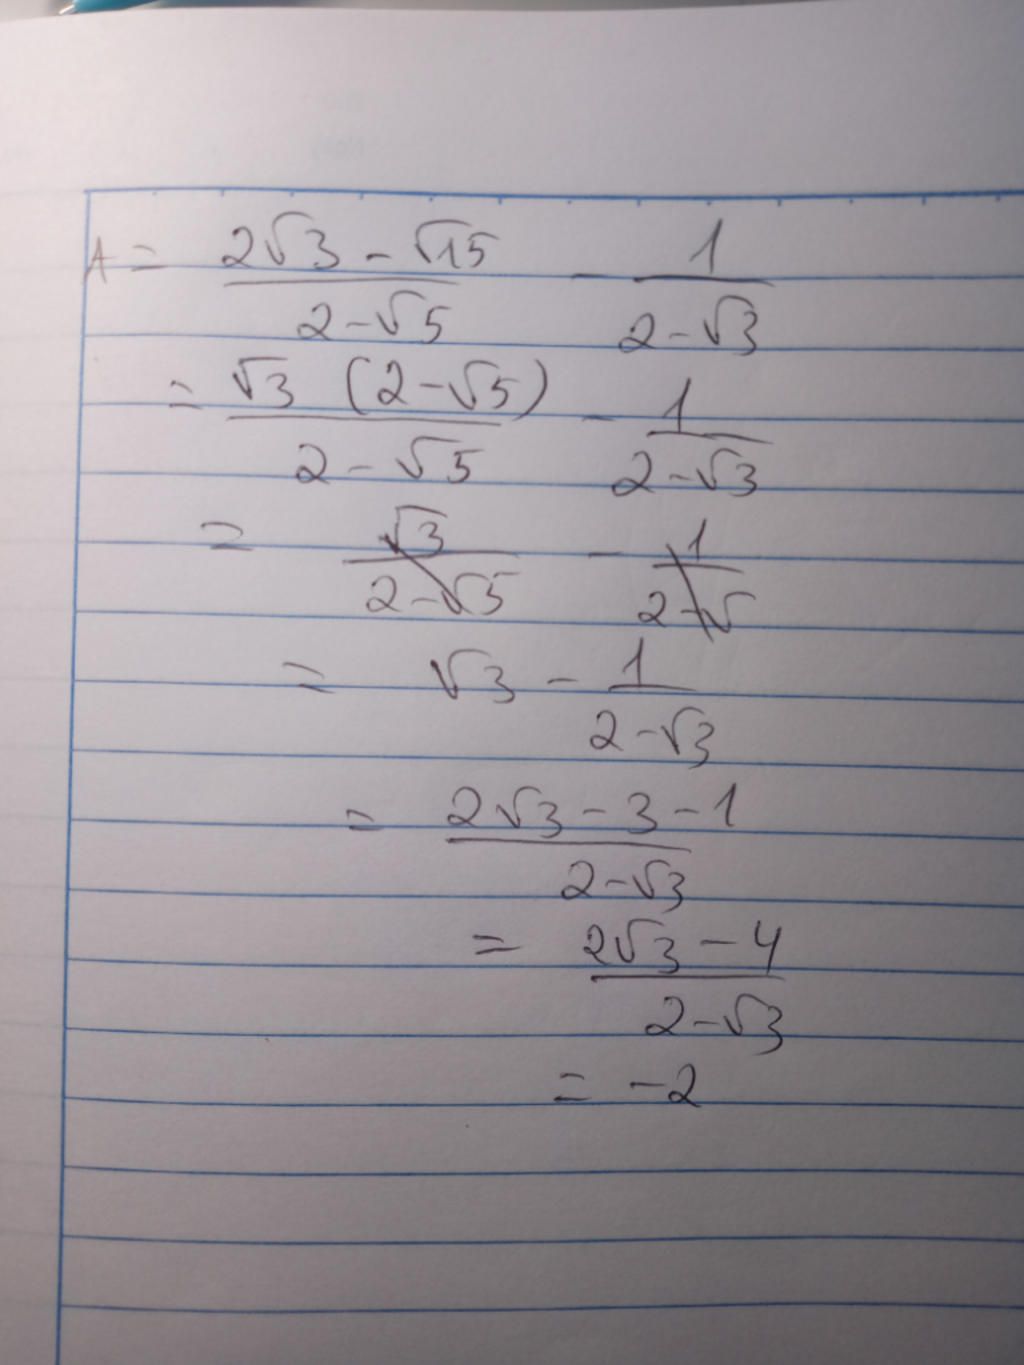 A = (2√3 - √15)/(2-√5) - 1/(2-√3)
= (√3 (2-√5))/(2-√5) - 1/(2-√3)
= √3/(2-√5) - 1/(2-√)
= √3 - 1/(2-√3)
= (2√3-3-1)/(2-√3)
= (2√3-4)/(2-√3)
= -2